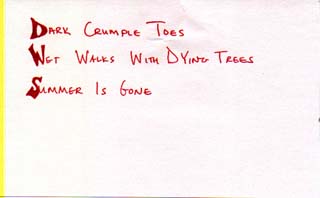 Dark Crumple Toes
Wet Walks With Dying Trees
Summer Is Gone